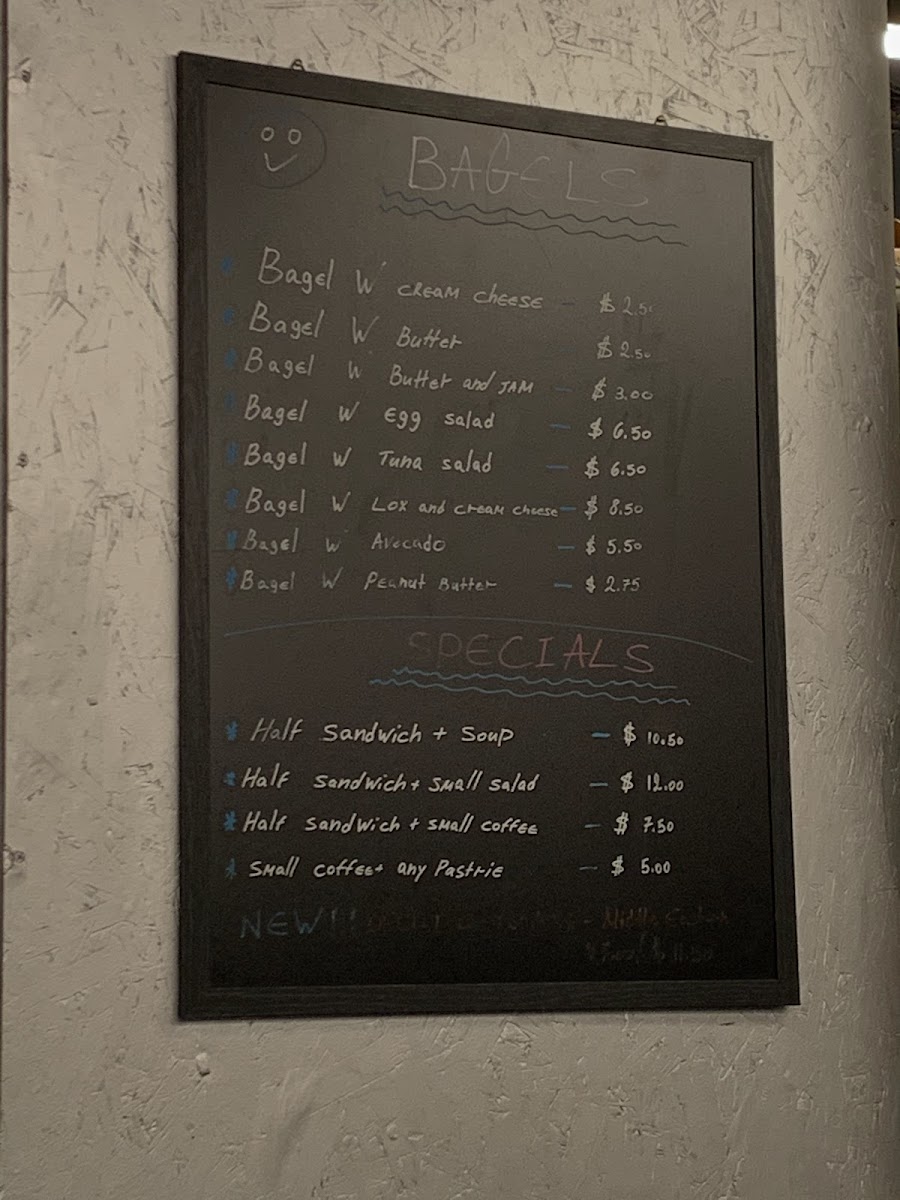 BAGELS
* Bagel W cream cheese - $ 2.50
* Bagel W Butter - $ 2.50
* Bagel W Butter and JAM - $ 3.00
* Bagel W Egg salad - $ 6.50
* Bagel W Tuna salad - $ 6.50
* Bagel W Lox and cream cheese - $ 8.50
* Bagel W Avocado - $ 5.50
* Bagel W Peanut Butter - $ 2.75
SPECIALS
* Half Sandwich + Soup - $ 10.50
* Half sandwich + small salad - $ 12.00
* Half sandwich + small coffee - $ 7.50
* Small coffee + any Pastrie - $ 5.00
NEW!!